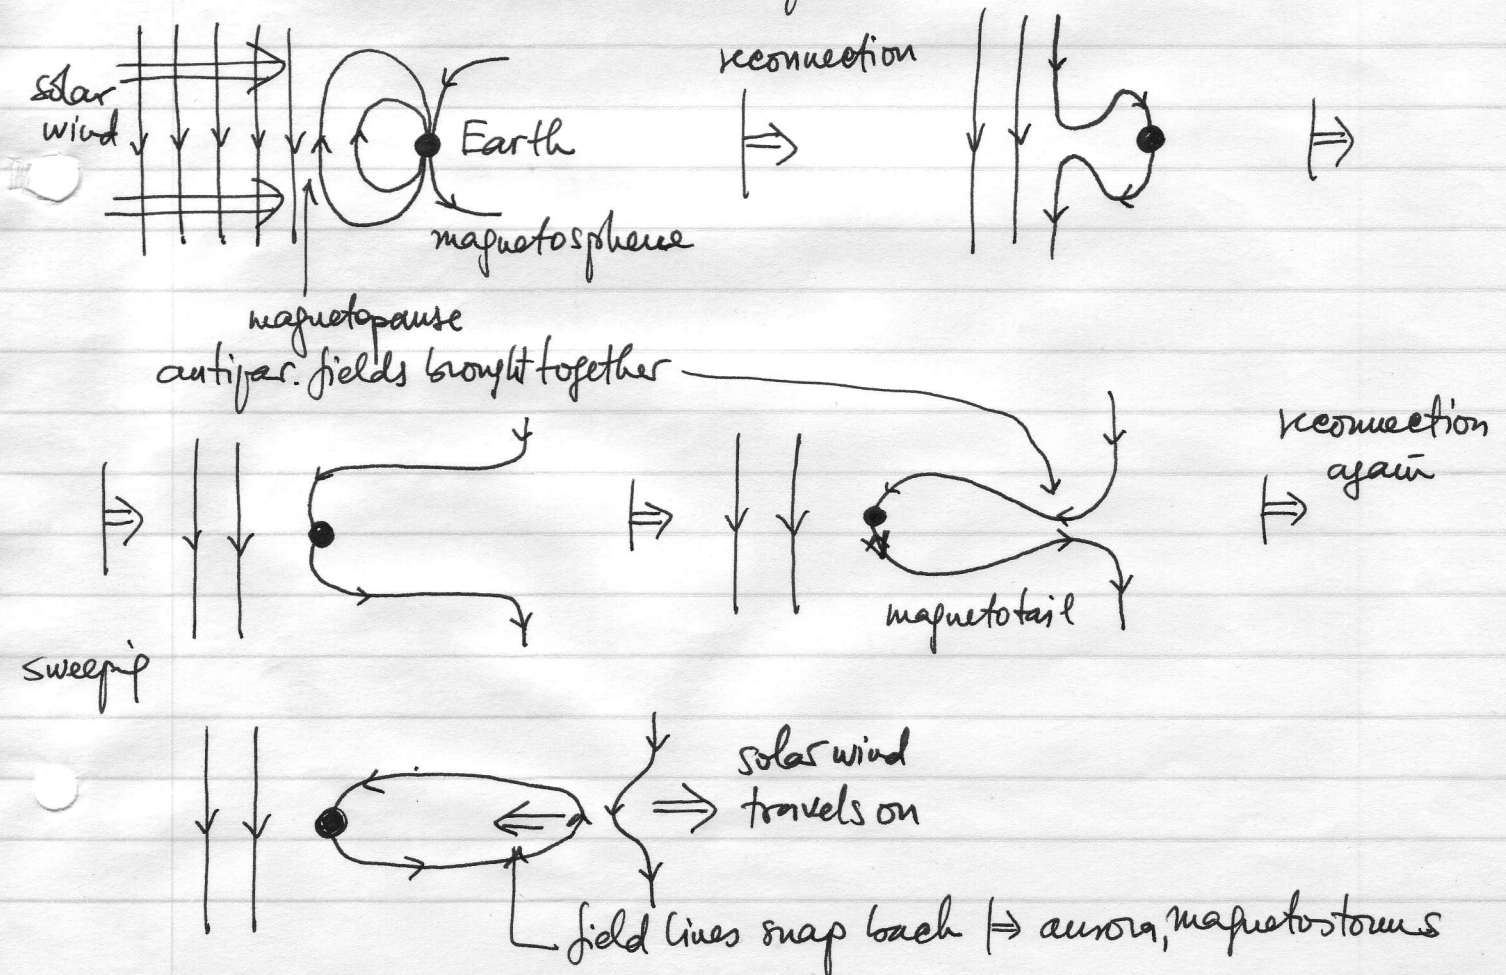 solar
wind
Earth
magnetosphere
reconnection
magnetopause
antipar. fields brought together
reconnection
again
magnetotail
sweeping
solar wind
travels on
field lines snap back ⇒ aurora, magnetostorms